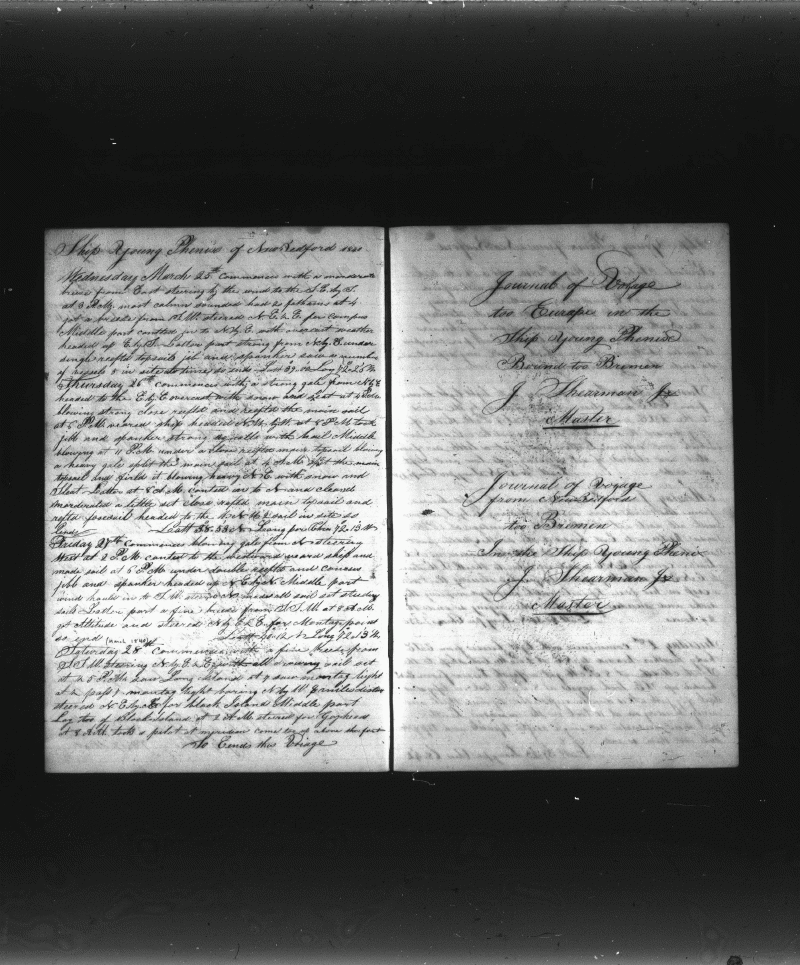 Ship Young Phenix of New Bedford 1840
Wednesday March 25th commences with a moderate
breeze from East steering by the wind to the S. E. by S.
at 3 P.M. most calm sounded had fathoms at 4
got a breeze from S W steered N. E. & E. for campus
Middle part hr to N by E. with overcast weather
headed up E by S. Latter part strong from N by E under
single reefts topsails jib and spanker saw a number
of vessels in site
Thursday 26th commences with a strong gale from
headed to the E by E overcast with snow and
blowing strong close reefts and reefts the main sail
at P.M. weared ship headed N W by at 8 P.M. took
jib and spanker strong squalls with hail Middle
blowing at 11 P.M. under a close reefts main topsail blowing
a heavy gale split the main sail at 4 A.M. the main
topsail and furled it blowing heavy N. E with snow and
Sleet Latter at 8 A.M. to N and cleared
moderated a little set close reefts main topsail and
reefts foresail headed to the sail in site so
Ends Latt 38.33 N Long
Friday 27th commences blowing gale from N steering
West at 2 P.M. to the ward ship and
made sail at 5 P.M. under double reefts and courses
jib and spanker headed up N E by N Middle part
wind hauls in to S. W. steers N made all sail set studding
sails Latter part a fine breeze from S. S. W. at 8 A.M.
got altitude and steered N by E & E. for Montog point
so end (March 1840) Latt Long
Saturday 28th commences with a fine breeze from
S. S. W. steering N by E & E with all drawing sail set
at 5 P.M. saw Long Island at 7 saw montog light
at past montog light baring N by W 8 miles distan
steered N E by E for black Island Middle part
Lay too of Block island at 2 A.M. steered for Goghead
at 8 A.M. took a pilot at come too of above the fort
So Eends this Voiage
Journal of Voyage
too Europe in the
Ship Young Phenix
Bound too Bremen
J. Shearman Jr
Master
Journal of Voyage
from New Bedford
too Bremen
In the Ship Young Pheni
J. Shearman Jr
Master